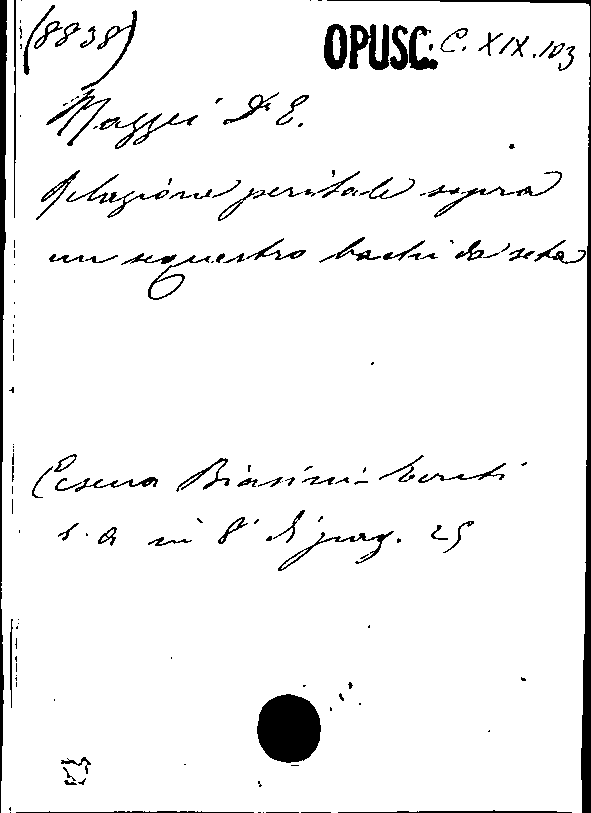 (8838)
OPUSC. C. XIX. 103
Mazzei Dr E.
Relazione peritale sopra
un sequestro bachi da seta
Cesena Biasini-
s. a in 8° di pag. 25